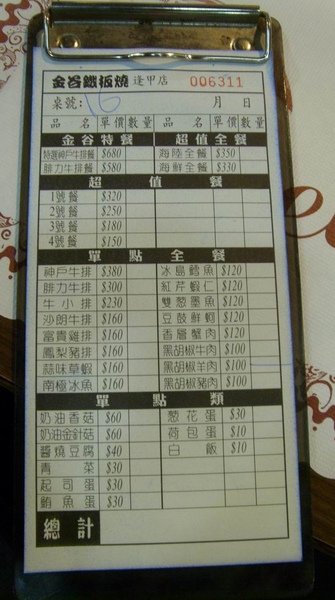 金谷鐵板燒 逢甲店 006311
桌號: 16 月 日
品 名 單價 數量 品 名 單價 數量
金谷特餐 超值全餐
特選神戶牛排餐 $680 海陸全餐 $350
腓力牛排餐 $580 海鮮全餐 $330
超 值 餐
1號餐 $320
2號餐 $250
3號餐 $180
4號餐 $150
單 點 全 餐
神戶牛排 $380 冰島鱈魚 $120
腓力牛排 $300 紅芹蝦仁 $120
牛小排 $230 雙蔥墨魚 $120
沙朗牛排 $160 豆鼓鮮蚵 $120
富貴雞排 $160 香層蟹肉 $120
鳳梨豬排 $160 黑胡椒牛肉 $100
蒜味草蝦 $160 黑胡椒羊肉 $100
南極冰魚 $160 黑胡椒豬肉 $100
單 點 類
奶油香菇 $60 蔥花蛋 $30
奶油金針菇 $60 荷包蛋 $10
醬燒豆腐 $40 白飯 $10
青菜 $30
起司蛋 $30
鮪魚蛋 $30
總計